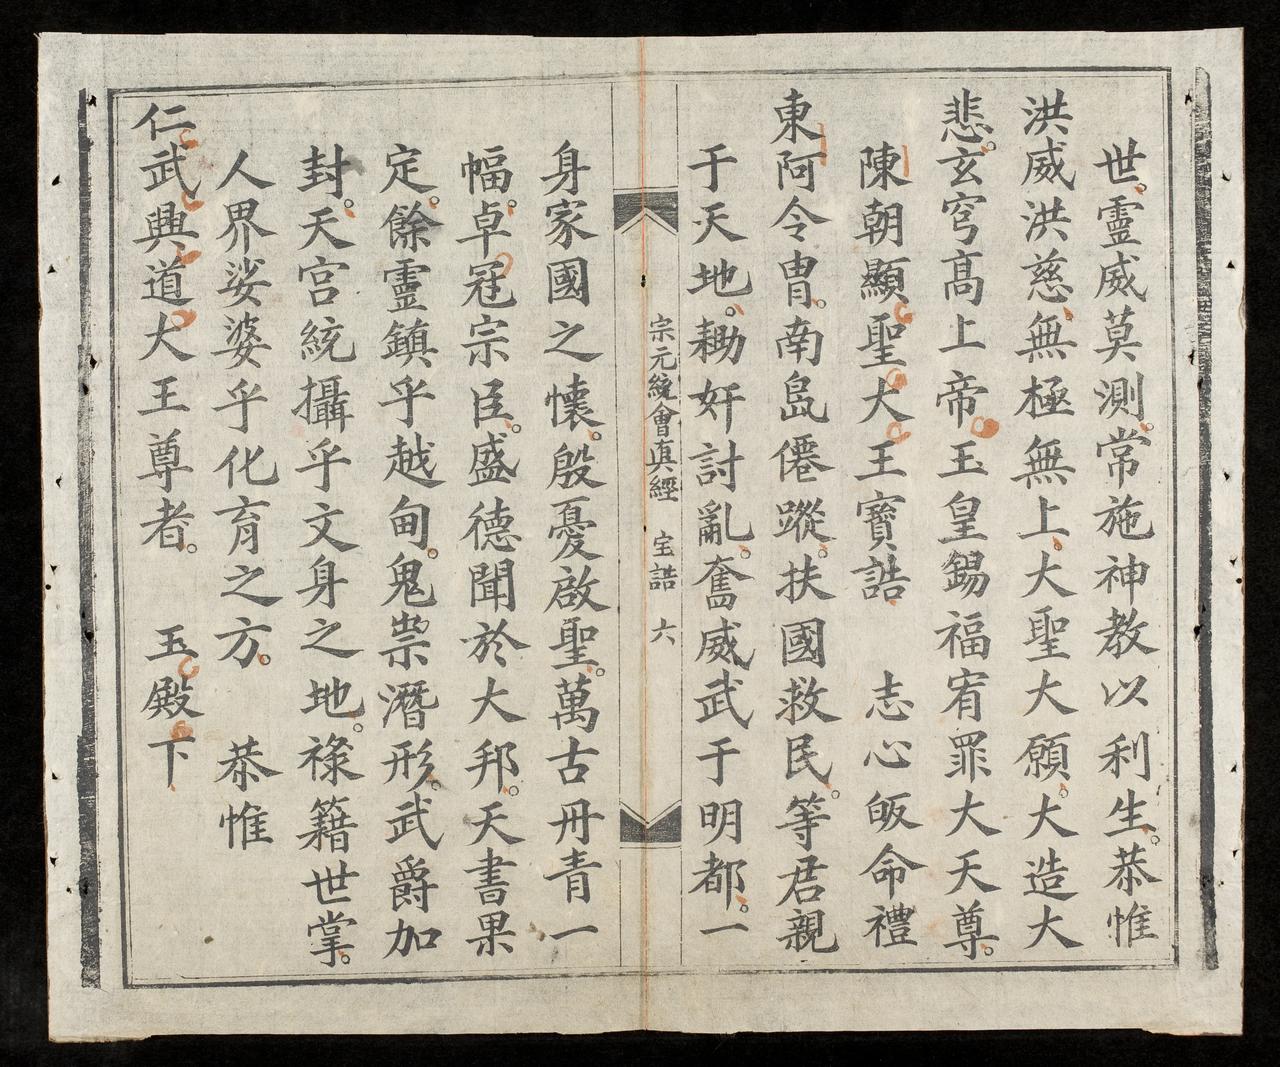 世。靈威莫測。常施神教以利生。恭惟
洪威洪慈。無極無上。大聖大願。大造大
悲。玄穹高上帝。玉皇錫福宥罪大天尊。
陳朝顯聖大王寶誥　志心皈命禮
東阿令冑。南島僊蹤。扶國救民。等君親
于天地。耡奸討亂。奮威武于明都。一
宗元統會真經　宝誥　六
身家國之懷。殷憂啟聖。萬古丹青一
幅。卓冠宗臣。盛德聞於大邦。天書果
定。餘靈鎮乎越甸。鬼祟潛形。武爵加
封。天宮統攝乎文身之地。祿籍世掌。
人界娑婆乎化育之方。　恭惟
仁武興道大王尊者。　玉殿下